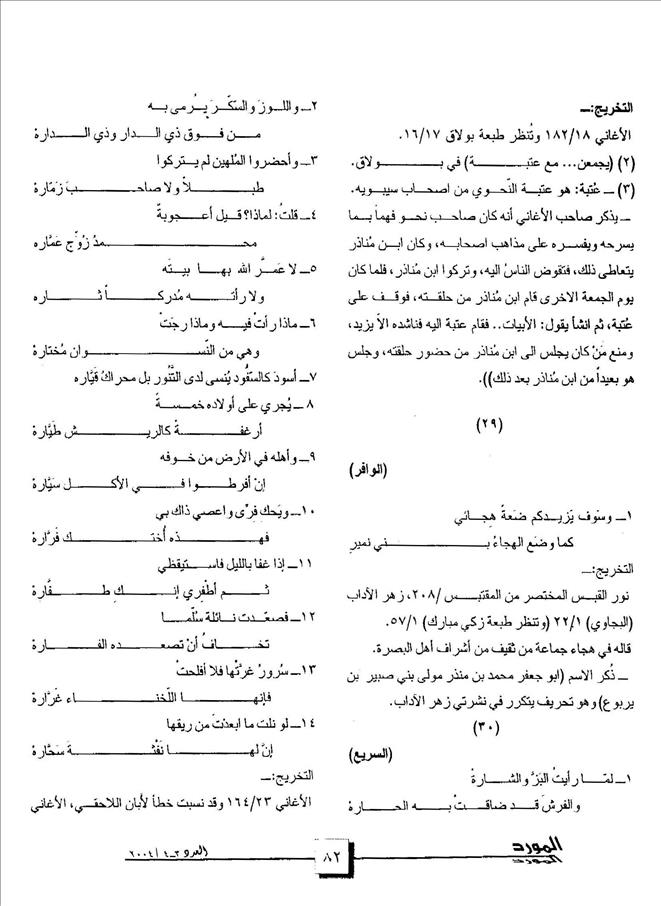 التخريج:ــ
الأغاني ١٨٢/١٨ وتُنظر طبعة بولاق ١٦/١٧.
(٢) (يجمعن... مع عتبــــــــة) في بــــــــولاق.
(٣) ــ عُتبة: هو عتبة النّحوي من اصحاب سيبويه.
ــ يذكر صاحب الأغاني أنه كان صاحب نحو فهماً بما
يسرحه ويفسره على مذاهب اصحابه، وكان ابـن مُناذر
يتعاطى ذلك، فتقوض الناسُ اليه، وتركوا ابن مُناذر، فلما كان
يوم الجمعة الاخرى قام ابن مُناذر من حلقته، فوقف على
عُتبة، ثم انشأ يقول: الأبيات.. فقام عتبة اليه فناشده الآ يزيد،
ومنع مَنْ كان يجلس الى ابن مناذر من حضور حلقته، وجلس
هو بعيداً من ابن مُناذر بعد ذلك)).
(٢٩)
(الوافر)
١ــ وسَوف يَزيدكم ضَعةً هِجائي
كما وضَع الهجاءُ بــــــــني نميرِ
التخريج:ــ
نور القبس المختصر من المقتبس /٢٠٨، زهر الآداب
(البجاوي) ٢٢/١ (وتنظر طبعة زكي مبارك) ٥٧/١.
قاله في هجاء جماعة من ثقيف من أشراف أهل البصرة.
ــ ذُكر الاسم (ابو جعفر محمد بن منذر مولى بني صبير بن
يربوع) وهو تحريف يتكرر في نشرتي زهر الآداب.
(٣٠)
(السريع)
١ــ لمّـا رأيتُ البَزَّ والشـارةْ
والفرشَ قـد ضاقـتْ بـه الحـارة
٢ــ واللوزَ والسّكّرَ يُرمى به
مـن فـوق ذي الـدار وذي الـدارة
٣ــ وأحضروا المُلهين لم يتركوا
طبــلاً ولا صاحــب زمّارة
٤ــ قلتُ: لماذا؟ قيل أعـجوبةٌ
محــــــــمدُ زُوّج عَمّاره
٥ــ لا عَمّرَ الله بهـا بيتَه
ولا رأتــه مُدركــاً ثــاره
٦ــ ماذا رأتْ فيـه وماذا رجَتْ
وهي من النّســـوان مُختارة
٧ــ أسودَ كالسَفُّود يُنسى لدى التّنُّور بل محراكُ قيَّاره
٨ــ يُجري على أولاده خمسةً
أرغفــةً كالريــش طيّارة
٩ــ وأهله في الأرض من خوفه
إنْ أفرطـوا فــي الأكــل سَيّارة
١٠ــ ويَحك فِرّي واعصي ذاك بي
فهــذه أُختــك فَرّارة
١١ــ إذا غفا بالليل فاستيقظي
ثــم أطْفِري إنــك طــفّارة
١٢ــ فصعّدت نـائلة سُلّمـا
تخــافُ أنْ تصعــده الفــارة
١٣ــ سُرورُ غرّتْها فلا أفلحتْ
فإنهــا اللّخنــاء غَرّارة
١٤ــ لو نلت ما ابعدْتَ من ريقها
إنّ لهــا نَفْثــةَ سَحّارة
التخريج:ــ
الأغاني ١٦٤/٢٣ وقد نسبت خطأ لأبان اللاحقي، الأغاني
المورد
العدد ٣ـ٤ / ٢٠٠٤
٨٢